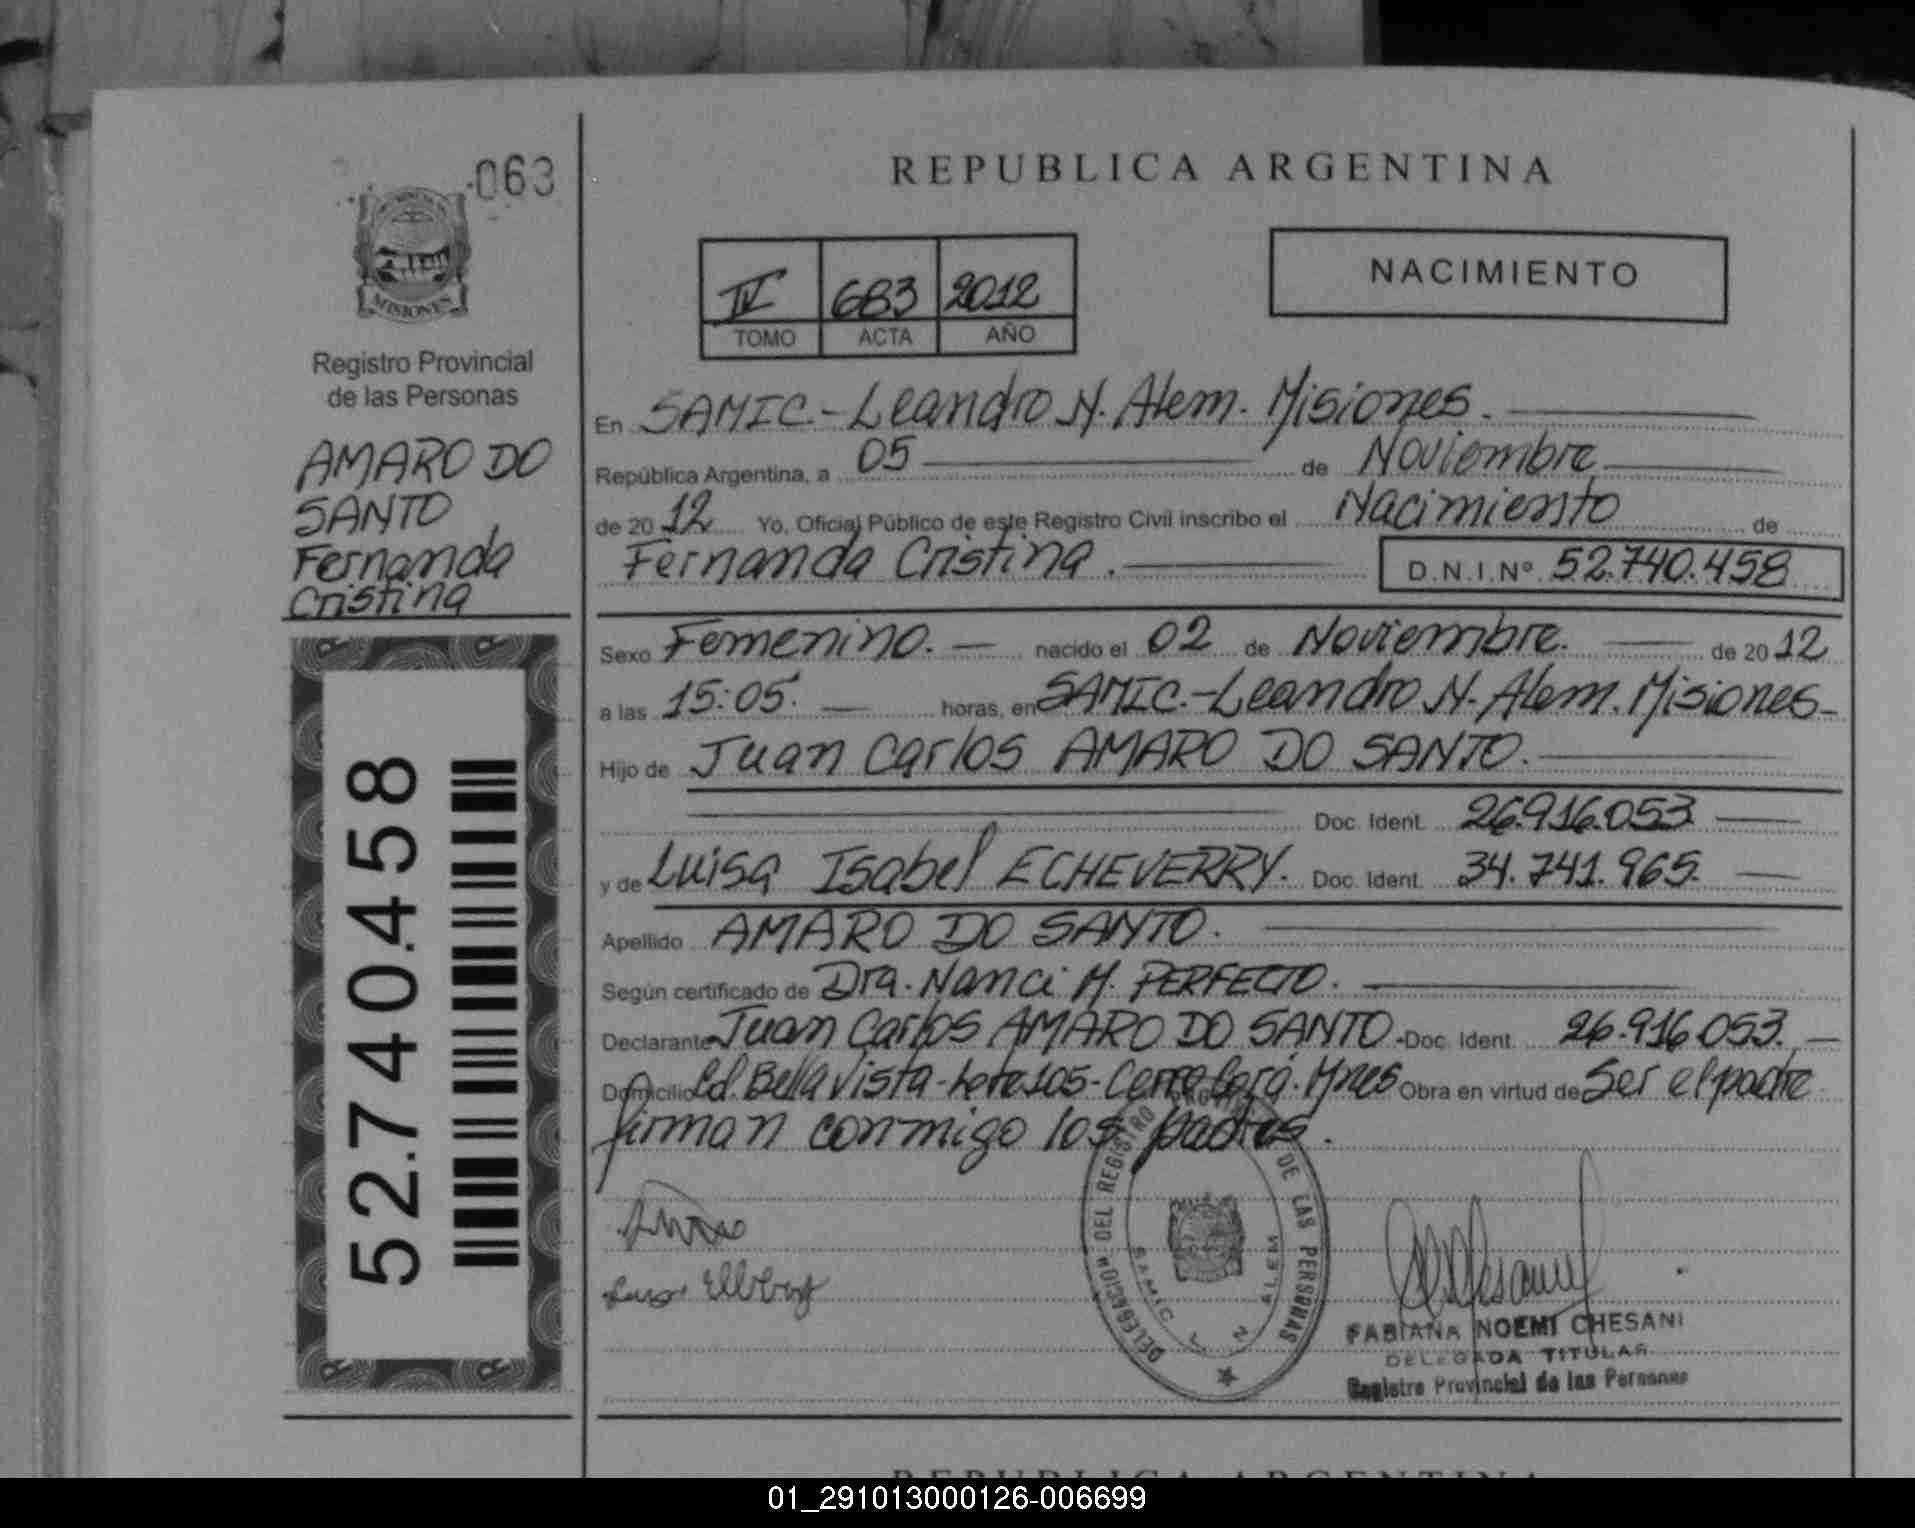 063
MISIONES
Registro Provincial
de las Personas
AMARO DO
SANTO
Fernanda
Cristina
52.740.458
REPUBLICA ARGENTINA
IV 683 2012
TOMO ACTA AÑO
NACIMIENTO
En SAMIC.-Leandro N. Alem. Misiones.
República Argentina, a 05 de Noviembre
de 2012 Yo, Oficial Público de este Registro Civil inscribo el Nacimiento de
Fernanda Cristina. D.N.I.Nº 52.740.458
Sexo Femenino. nacido el 02 de Noviembre. de 2012
a las 15:05. horas, en SAMIC.-Leandro N. Alem. Misiones
Hijo de Juan Carlos AMARO DO SANTO.
Doc. Ident. 26.916.053
y de Luisa Isabel ECHEVERRY. Doc. Ident. 34.741.965.
Apellido AMARO DO SANTO.
Según certificado de Dra. Nanci M. PERFECTO.
Declarante Juan Carlos AMARO DO SANTO. Doc. Ident. 26.916.053.
Domicilio Cd. Bella Vista-Lote 105-Cerro Corá. Mnes Obra en virtud de Ser el padre
firman conmigo los padres.
DELEGACION DEL REGISTRO DE LAS PERSONAS
SAMIC L N ALEM
FABIANA NOEMI CHESANI
DELEGADA TITULAR
Registro Provincial de las Personas
REPUBLICA ARGENTINA
01_291013000126-006699